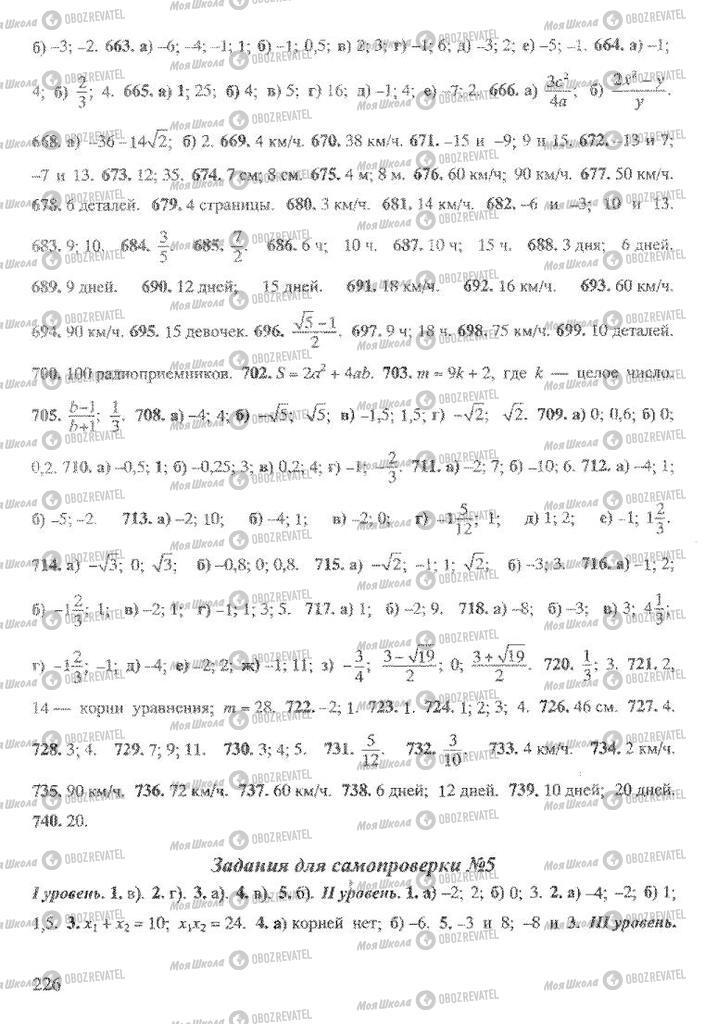 б) –3; –2. 663. а) –6; –4; –1; 1; б) –1; 0,5; в) 2; 3; г) –1; 6; д) –3; 2; е) –5; –1. 664. а) –1;
4; б) 2/3; 4. 665. а) 1; 25; б) 4; в) 5; г) 16; д) –1; 4; е) –7; 2. 666. а) 3c²/4a; б) (2x² – y)/y.
668. а) –36 – 14√2; б) 2. 669. 4 км/ч. 670. 38 км/ч. 671. –15 и –9; 9 и 15. 672. –13 и 7;
–7 и 13. 673. 12; 35. 674. 7 см; 8 см. 675. 4 м; 8 м. 676. 60 км/ч; 90 км/ч. 677. 50 км/ч.
678. 6 деталей. 679. 4 страницы. 680. 3 км/ч. 681. 14 км/ч. 682. –6 и –3; 10 и 13.
683. 9; 10. 684. 3/5. 685. 7/2. 686. 6 ч; 10 ч. 687. 10 ч; 15 ч. 688. 3 дня; 6 дней.
689. 9 дней. 690. 12 дней; 15 дней. 691. 18 км/ч. 692. 16 км/ч. 693. 60 км/ч.
694. 90 км/ч. 695. 15 девочек. 696. (√5 – 1)/2. 697. 9 ч; 18 ч. 698. 75 км/ч. 699. 10 деталей.
700. 100 радиоприемников. 702. S = 2a² + 4ab. 703. m = 9k + 2, где k — целое число.
705. (b–1)/(b+1); 1/3. 708. а) –4; 4; б) –√5; √5; в) –1,5; 1,5; г) –√2; √2. 709. а) 0; 0,6; б) 0;
0,2. 710. а) –0,5; 1; б) –0,25; 3; в) 0,2; 4; г) –1; –2/3. 711. а) –2; 7; б) –10; 6. 712. а) –4; 1;
б) –5; –2. 713. а) –2; 10; б) –4; 1; в) –2; 0; г) –1 5/12; 1; д) 1; 2; е) –1; 1 2/3.
714. а) –√3; 0; √3; б) –0,8; 0; 0,8. 715. а) –√2; –1; 1; √2; б) –3; 3. 716. а) –1; 2;
б) –1 2/3; 1; в) –2; 1; г) –1; 1; 3; 5. 717. а) 1; б) –2; 9. 718. а) –8; б) –3; в) 3; 4 1/3;
г) –1 2/3; –1; д) –4; е) –2; 2; ж) –1; 11; з) –3/4; (3 – √19)/2; 0; (3 + √19)/2. 720. 1/3; 3. 721. 2,
14 — корни уравнения; m = 28. 722. –2; 1. 723. 1. 724. 1; 2; 3; 4. 726. 46 см. 727. 4.
728. 3; 4. 729. 7; 9; 11. 730. 3; 4; 5. 731. 5/12. 732. 3/10. 733. 4 км/ч. 734. 2 км/ч.
735. 90 км/ч. 736. 72 км/ч. 737. 60 км/ч. 738. 6 дней; 12 дней. 739. 10 дней; 20 дней.
740. 20.
Задания для самопроверки №5
I уровень. 1. в). 2. г). 3. а). 4. в). 5. б). II уровень. 1. а) –2; 2; б) 0; 3. 2. а) –4; –2; б) 1;
1,5. 3. x₁ + x₂ = 10; x₁x₂ = 24. 4. а) корней нет; б) –6. 5. –3 и 8; –8 и 3. III уровень.
226